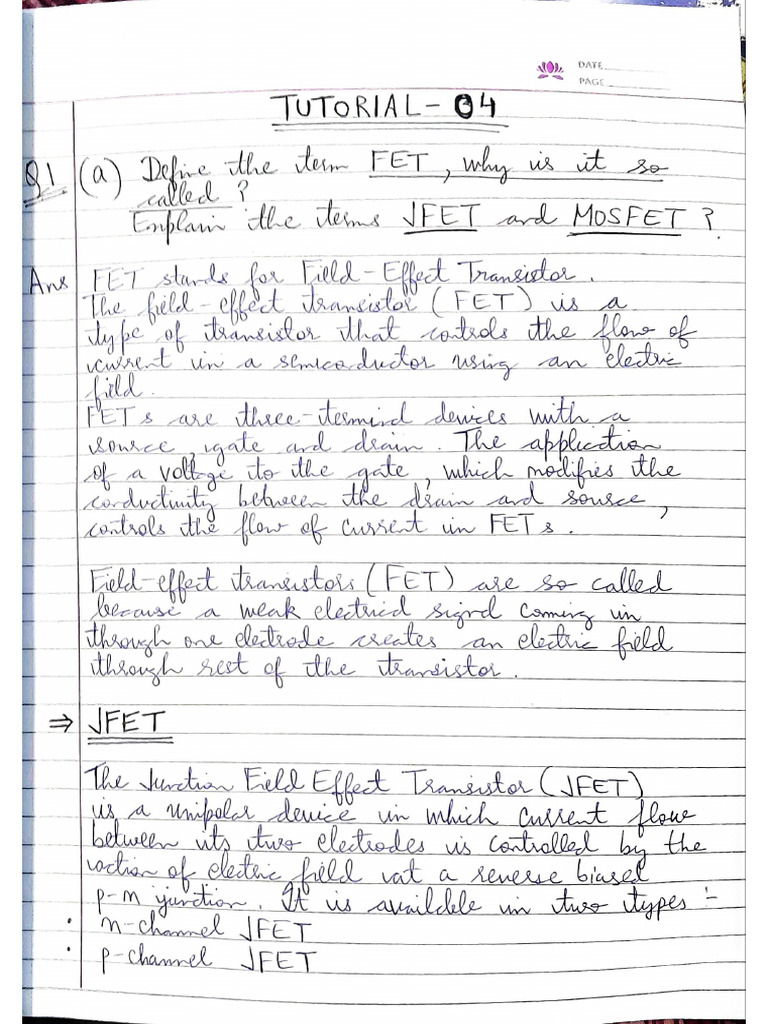 DATE
PAGE
TUTORIAL - 04
Q1 (a) Define the term FET, why is it so
called ?
Explain the terms JFET and MOSFET ?
Ans FET stands for Field-Effect Transistor.
The field-effect transistor (FET) is a
type of transistor that controls the flow of
current in a semiconductor using an electric
field.
FETs are three-terminal devices with a
source, gate and drain. The application
of a voltage to the gate, which modifies the
conductivity between the drain and source,
controls the flow of current in FETs.
Field-effect transistors (FET) are so called
because a weak electrical signal coming in
through one electrode creates an electric field
through rest of the transistor.
⇒ JFET
The Junction Field Effect Transistor (JFET)
is a unipolar device in which current flow
between its two electrodes is controlled by the
action of electric field at a reverse biased
p-n junction. It is available in two types :-
· n-channel JFET
· p-channel JFET